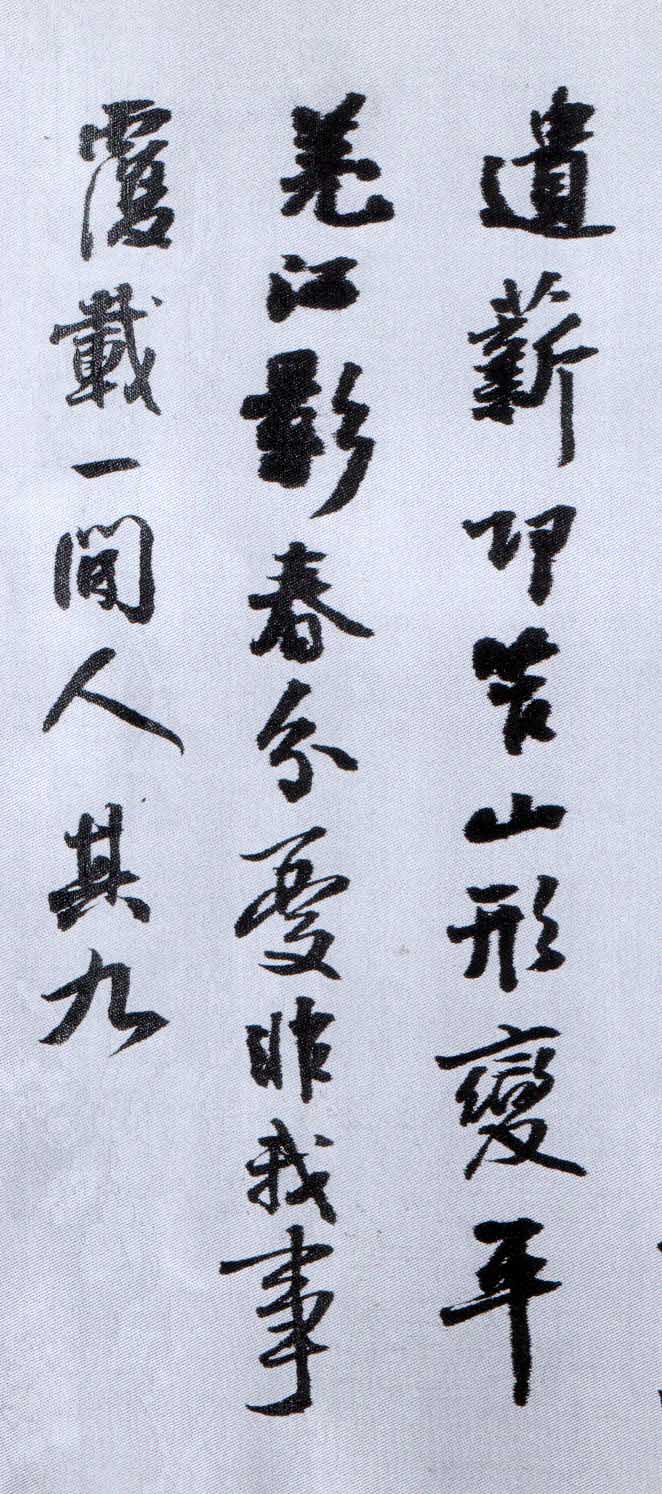 遺薪邛笮山形變平
羌江影春分憂非我事
覆載一閒人 其九